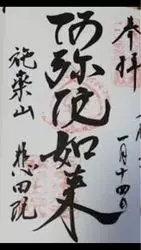 奉拝
一月十四日
阿弥陀如来
施薬山
悲田院